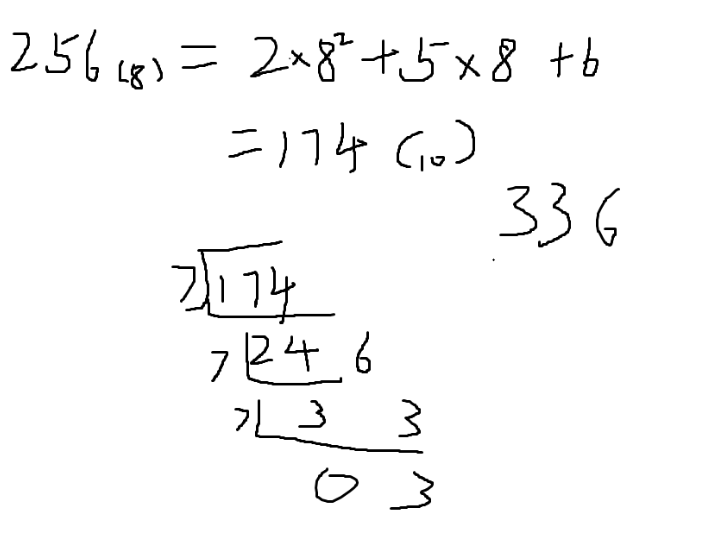 256(8) = 2×8²+5×8+6
=174 (10)
336
7 174
7 24 6
7 3 3
0 3